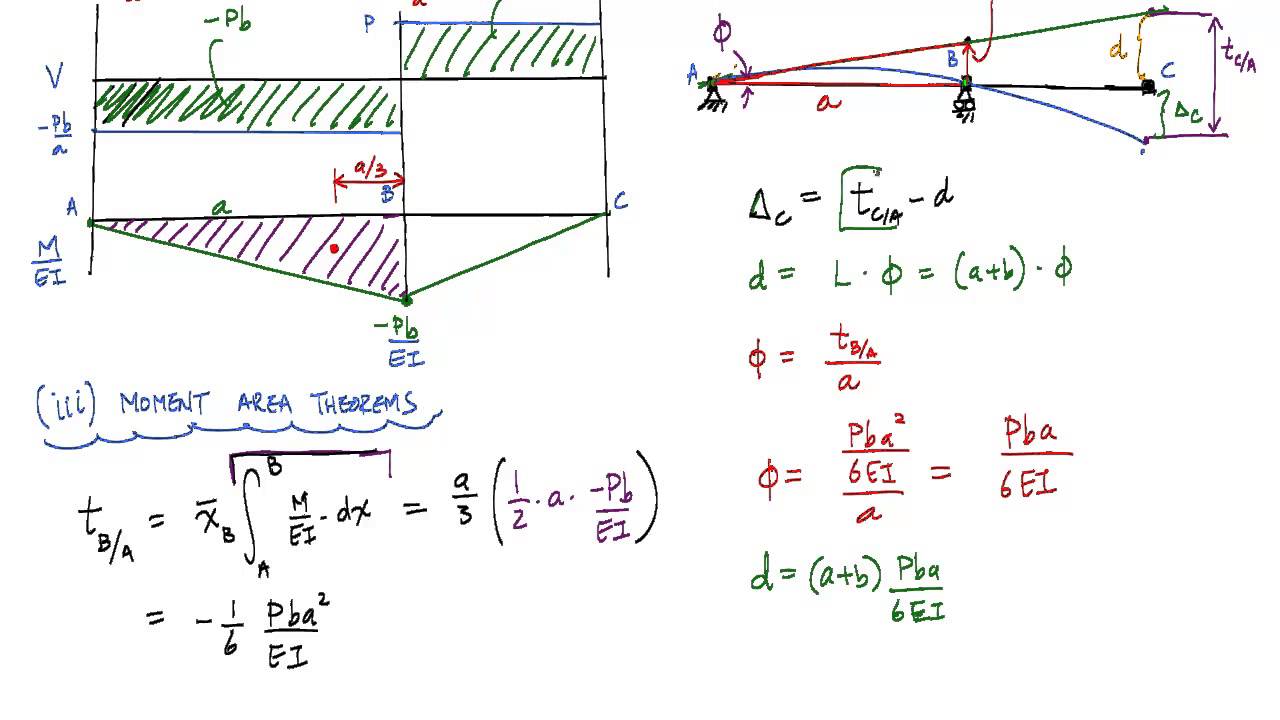 -Pb
P
V
-Pb/a
a/3
B
A
a
C
M/EI
-Pb/EI
(iii) MOMENT AREA THEOREMS
t_B/A = x̄_B ∫_A^B M/EI · dx = a/3 (1/2 · a · -Pb/EI)
= - 1/6 Pba²/EI
ϕ
A
B
a
d
C
t_C/A
Δ_C
Δ_C = t_C/A - d
d = L · ϕ = (a+b) · ϕ
ϕ = t_B/A / a
ϕ = Pba²/6EI / a = Pba/6EI
d = (a+b) Pba/6EI